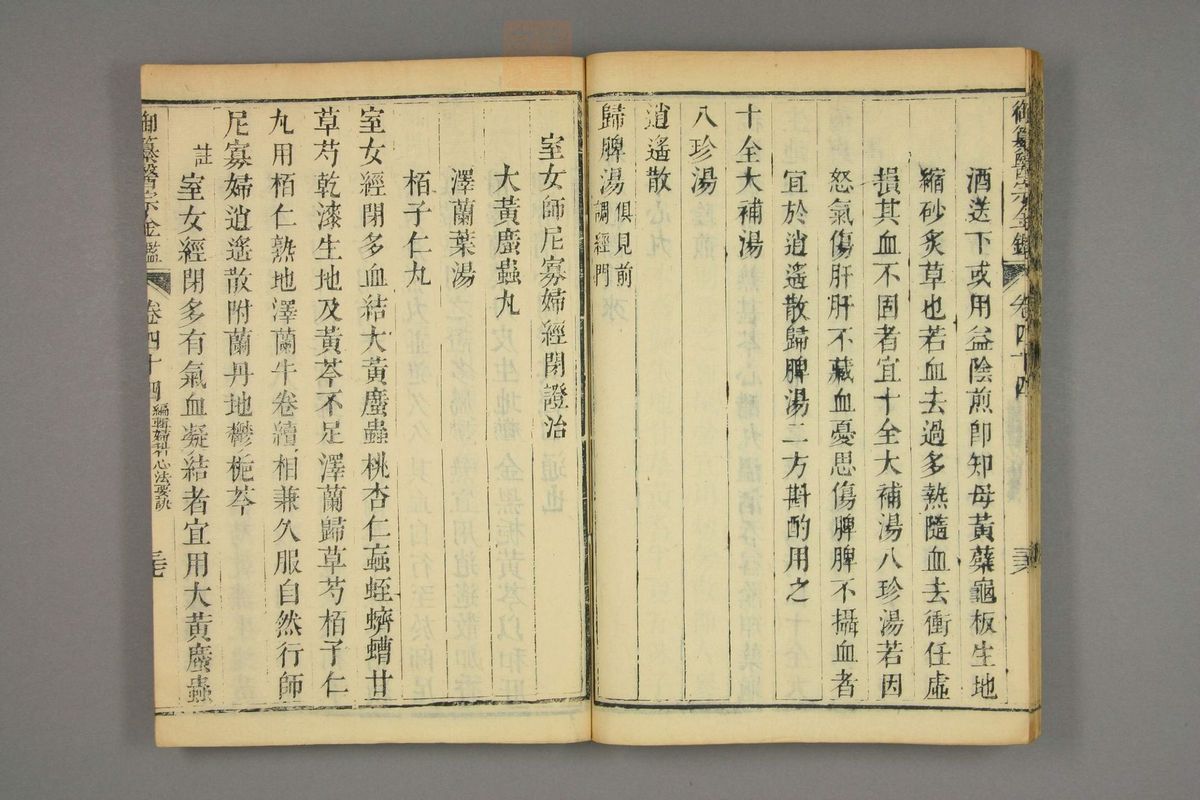 御纂醫宗金鑑 卷四十四
酒送下或用益陰煎卽知母黃蘗龜板生地
縮砂炙草也若血去過多熱隨血去衝任虛
損其血不固者宜十全大補湯八珍湯若因
怒氣傷肝肝不藏血憂思傷脾脾不攝血者
宜於逍遙散歸脾湯二方斟酌用之
十全大補湯
八珍湯
逍遙散
歸脾湯 俱見前調經門
室女師尼寡婦經閉證治
大黃䗪蟲丸
澤蘭葉湯
栢子仁丸
室女經閉多血結大黃䗪蟲桃杏仁䖟蛭蠐螬甘
草芍乾漆生地及黃芩不足澤蘭歸草芍栢子仁
丸用栢仁熟地澤蘭牛卷續相兼久服自然行師
尼寡婦逍遙散附蘭丹地鬱梔芩
註 室女經閉多有氣血凝結者宜用大黃䗪蟲
御纂醫宗金鑑 卷四十四 編輯婦科心法要訣